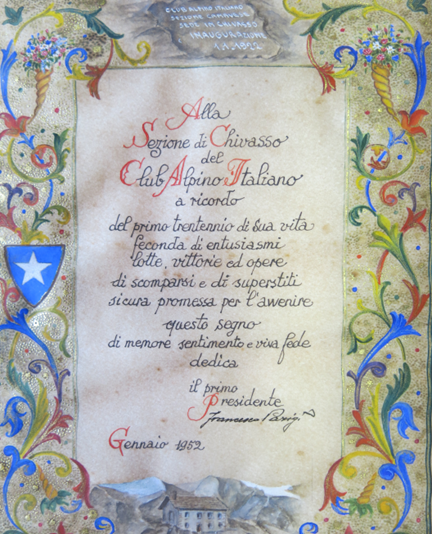 CLUB ALPINO ITALIANO
SEZIONE CANAVESE
SEDE IN CHIVASSO
INAUGURAZIONE
1.1.1922
Alla
Sezione di Chivasso
del
Club Alpino Italiano
a ricordo
del primo trentennio di sua vita
feconda di entusiasmi
lotte, vittorie ed opere
di scomparsi e di superstiti
sicura promessa per l'avvenire
questo segno
di memore sentimento e viva fede
dedica
il primo
Presidente
Francesco
Gennaio 1952